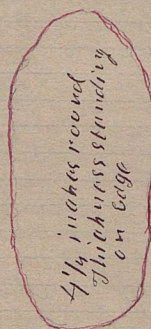 4 1/4 inches round
Thickness standing
on Edge